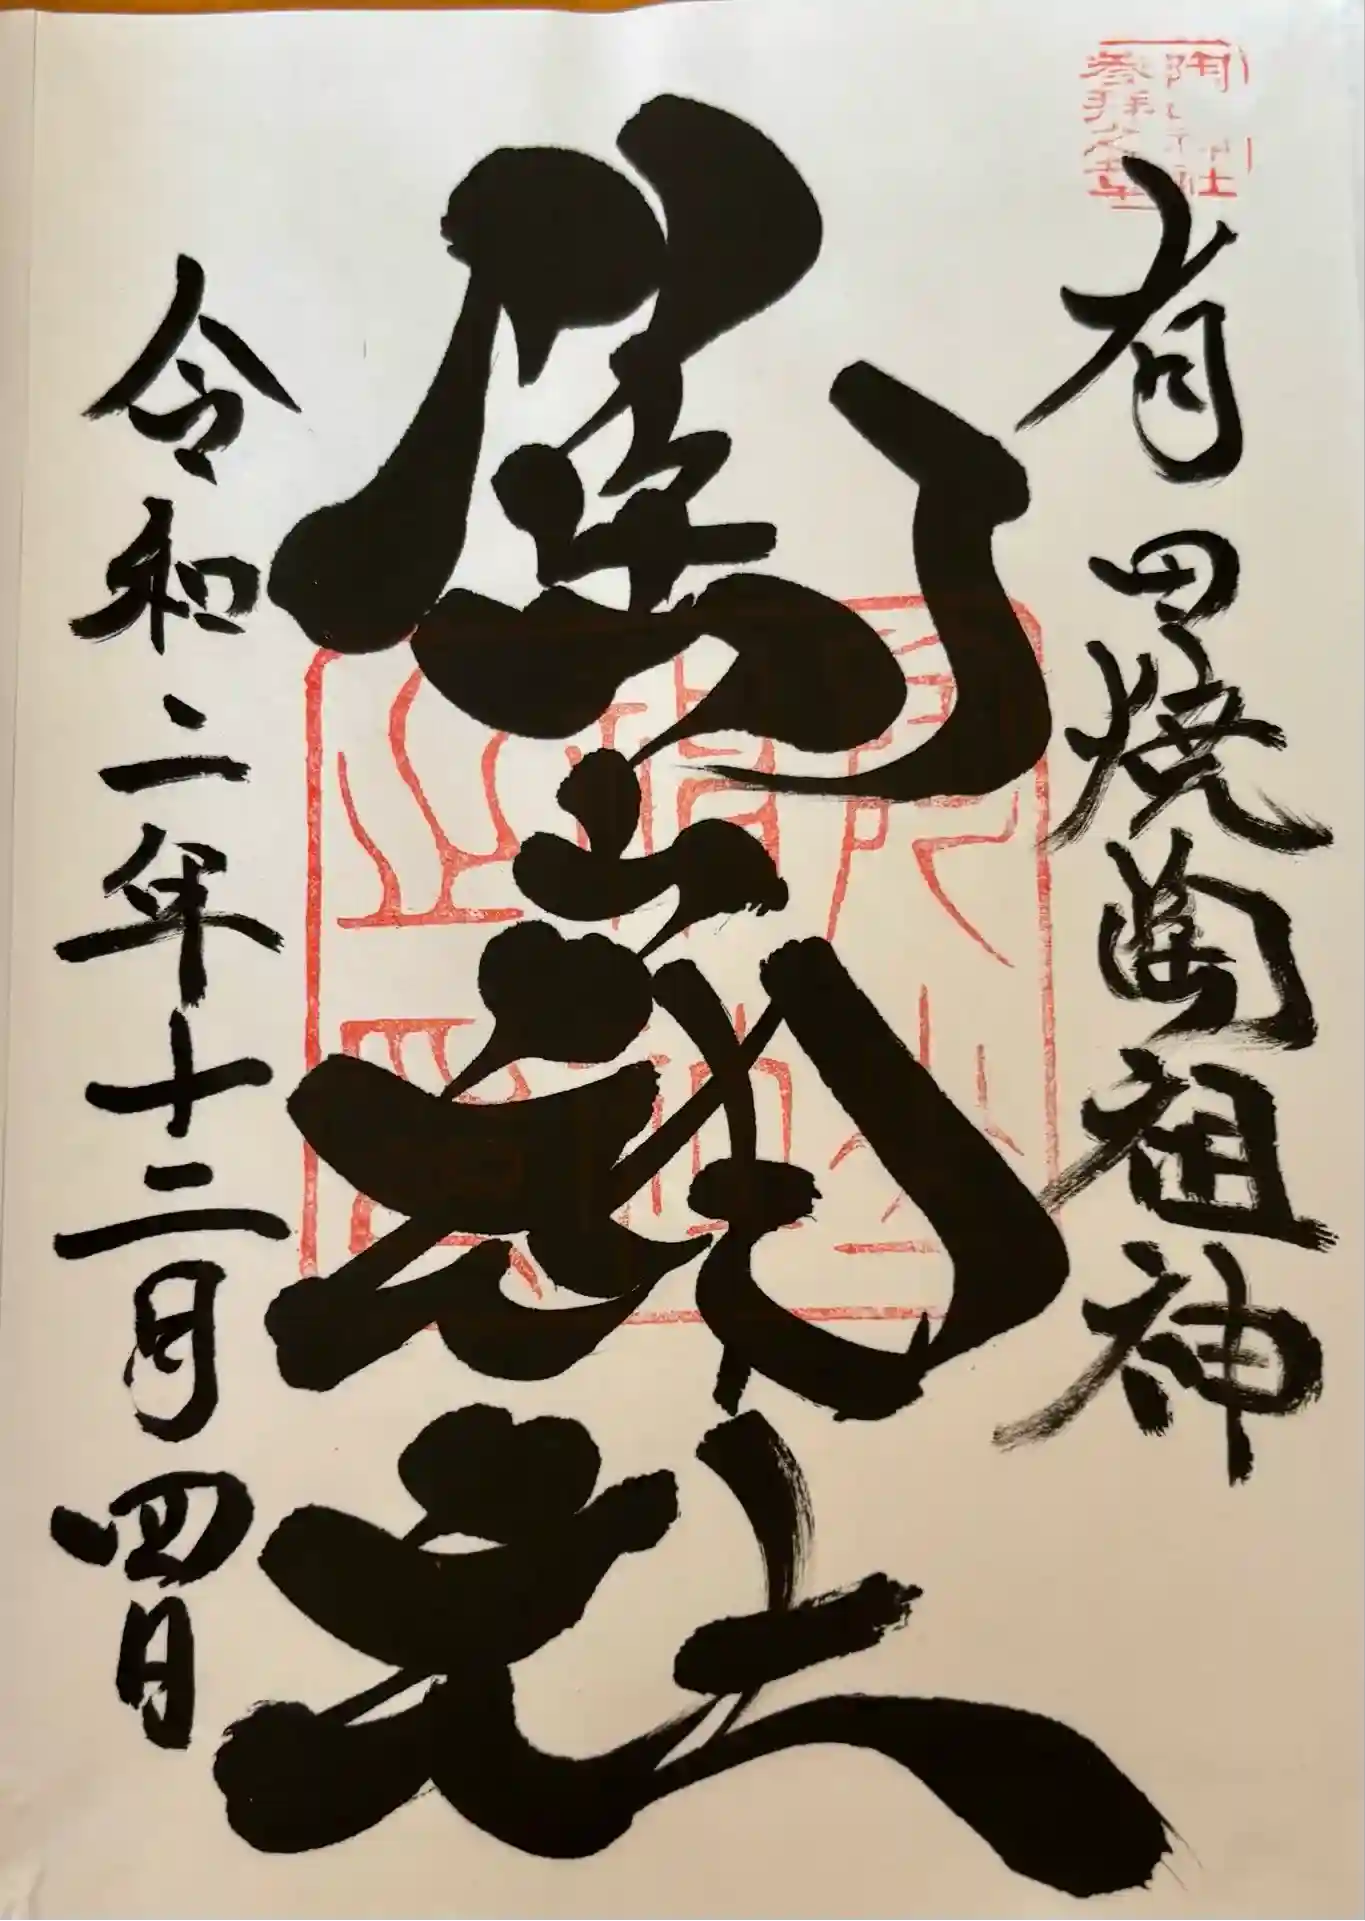 陶山神社
参拝之証
有田焼陶祖神
陶山神社
令和二年十二月四日